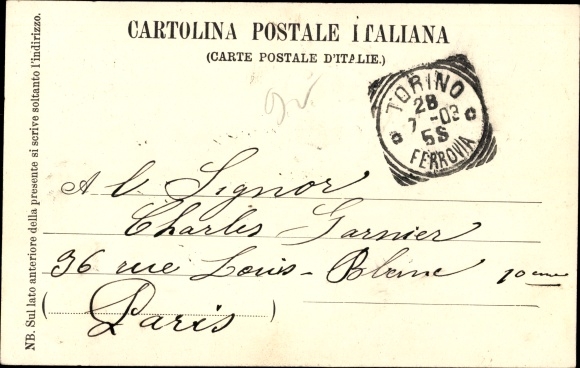 CARTOLINA POSTALE ITALIANA
(CARTE POSTALE D'ITALIE.)
TORINO
28
7 -03
5S
FERROVIA
Al Signor
Charles Garnier
36 rue Louis-Blanc 10eme
(Paris)
NB. Sul lato anteriore della presente si scrive soltanto l'indirizzo.